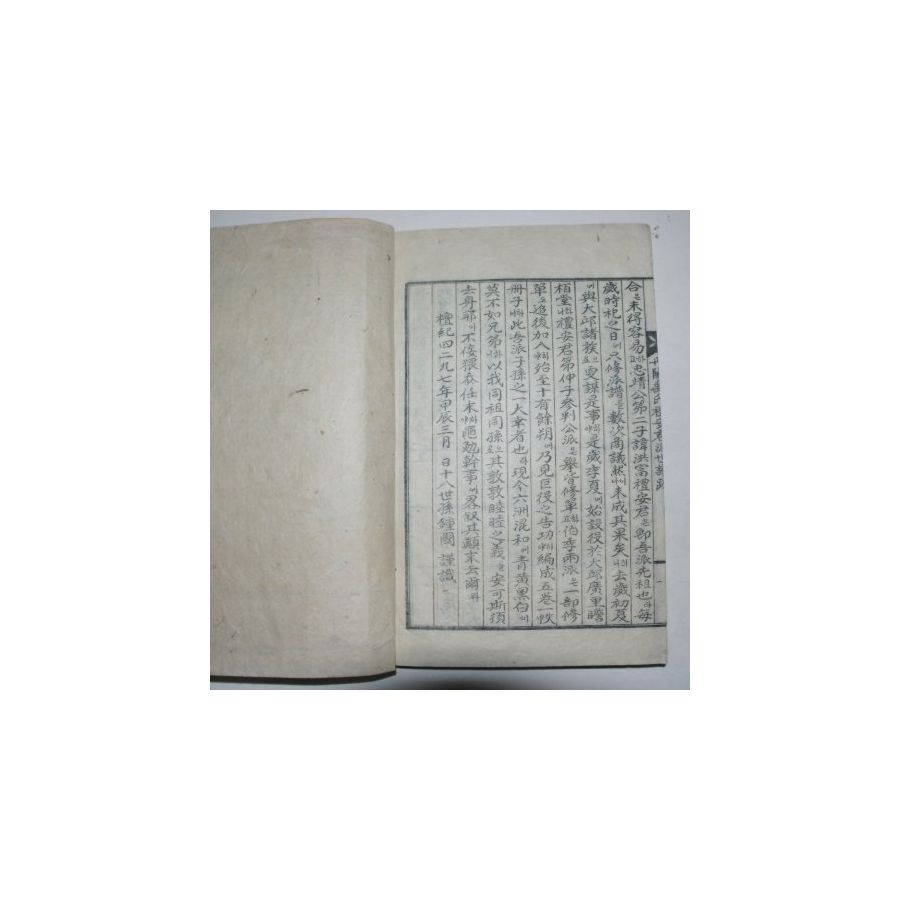 合은未得容易하고忠靖公第二子諱洪富禮安君은卽吾派先祖也라每
歲時祀之日에以修派譜로數次商議然이나未成其果矣러니去歲初夏
에與大邱諸族으로更謀是事하야是歲季夏에始設役於大邱廣里瞻
栢堂하니禮安君第仲子參判公派는擧皆修單하고伯季兩派는一部修
單으로追後加入하야殆至十有餘朔에乃見巨役之告功하야編成五卷一帙
册子하니此吾派子孫之一大幸者也라現今六洲混和에靑黃黑白이
莫不如兄第하니以我同祖同孫으로其敦敦睦睦之義를安可斯須
去身耶아不侫猥忝任末하야黽勉幹事에畧叙其顚末云爾라
檀紀四二九七年甲辰三月 日十八世孫鍾國 謹識
禮安君派世譜
一